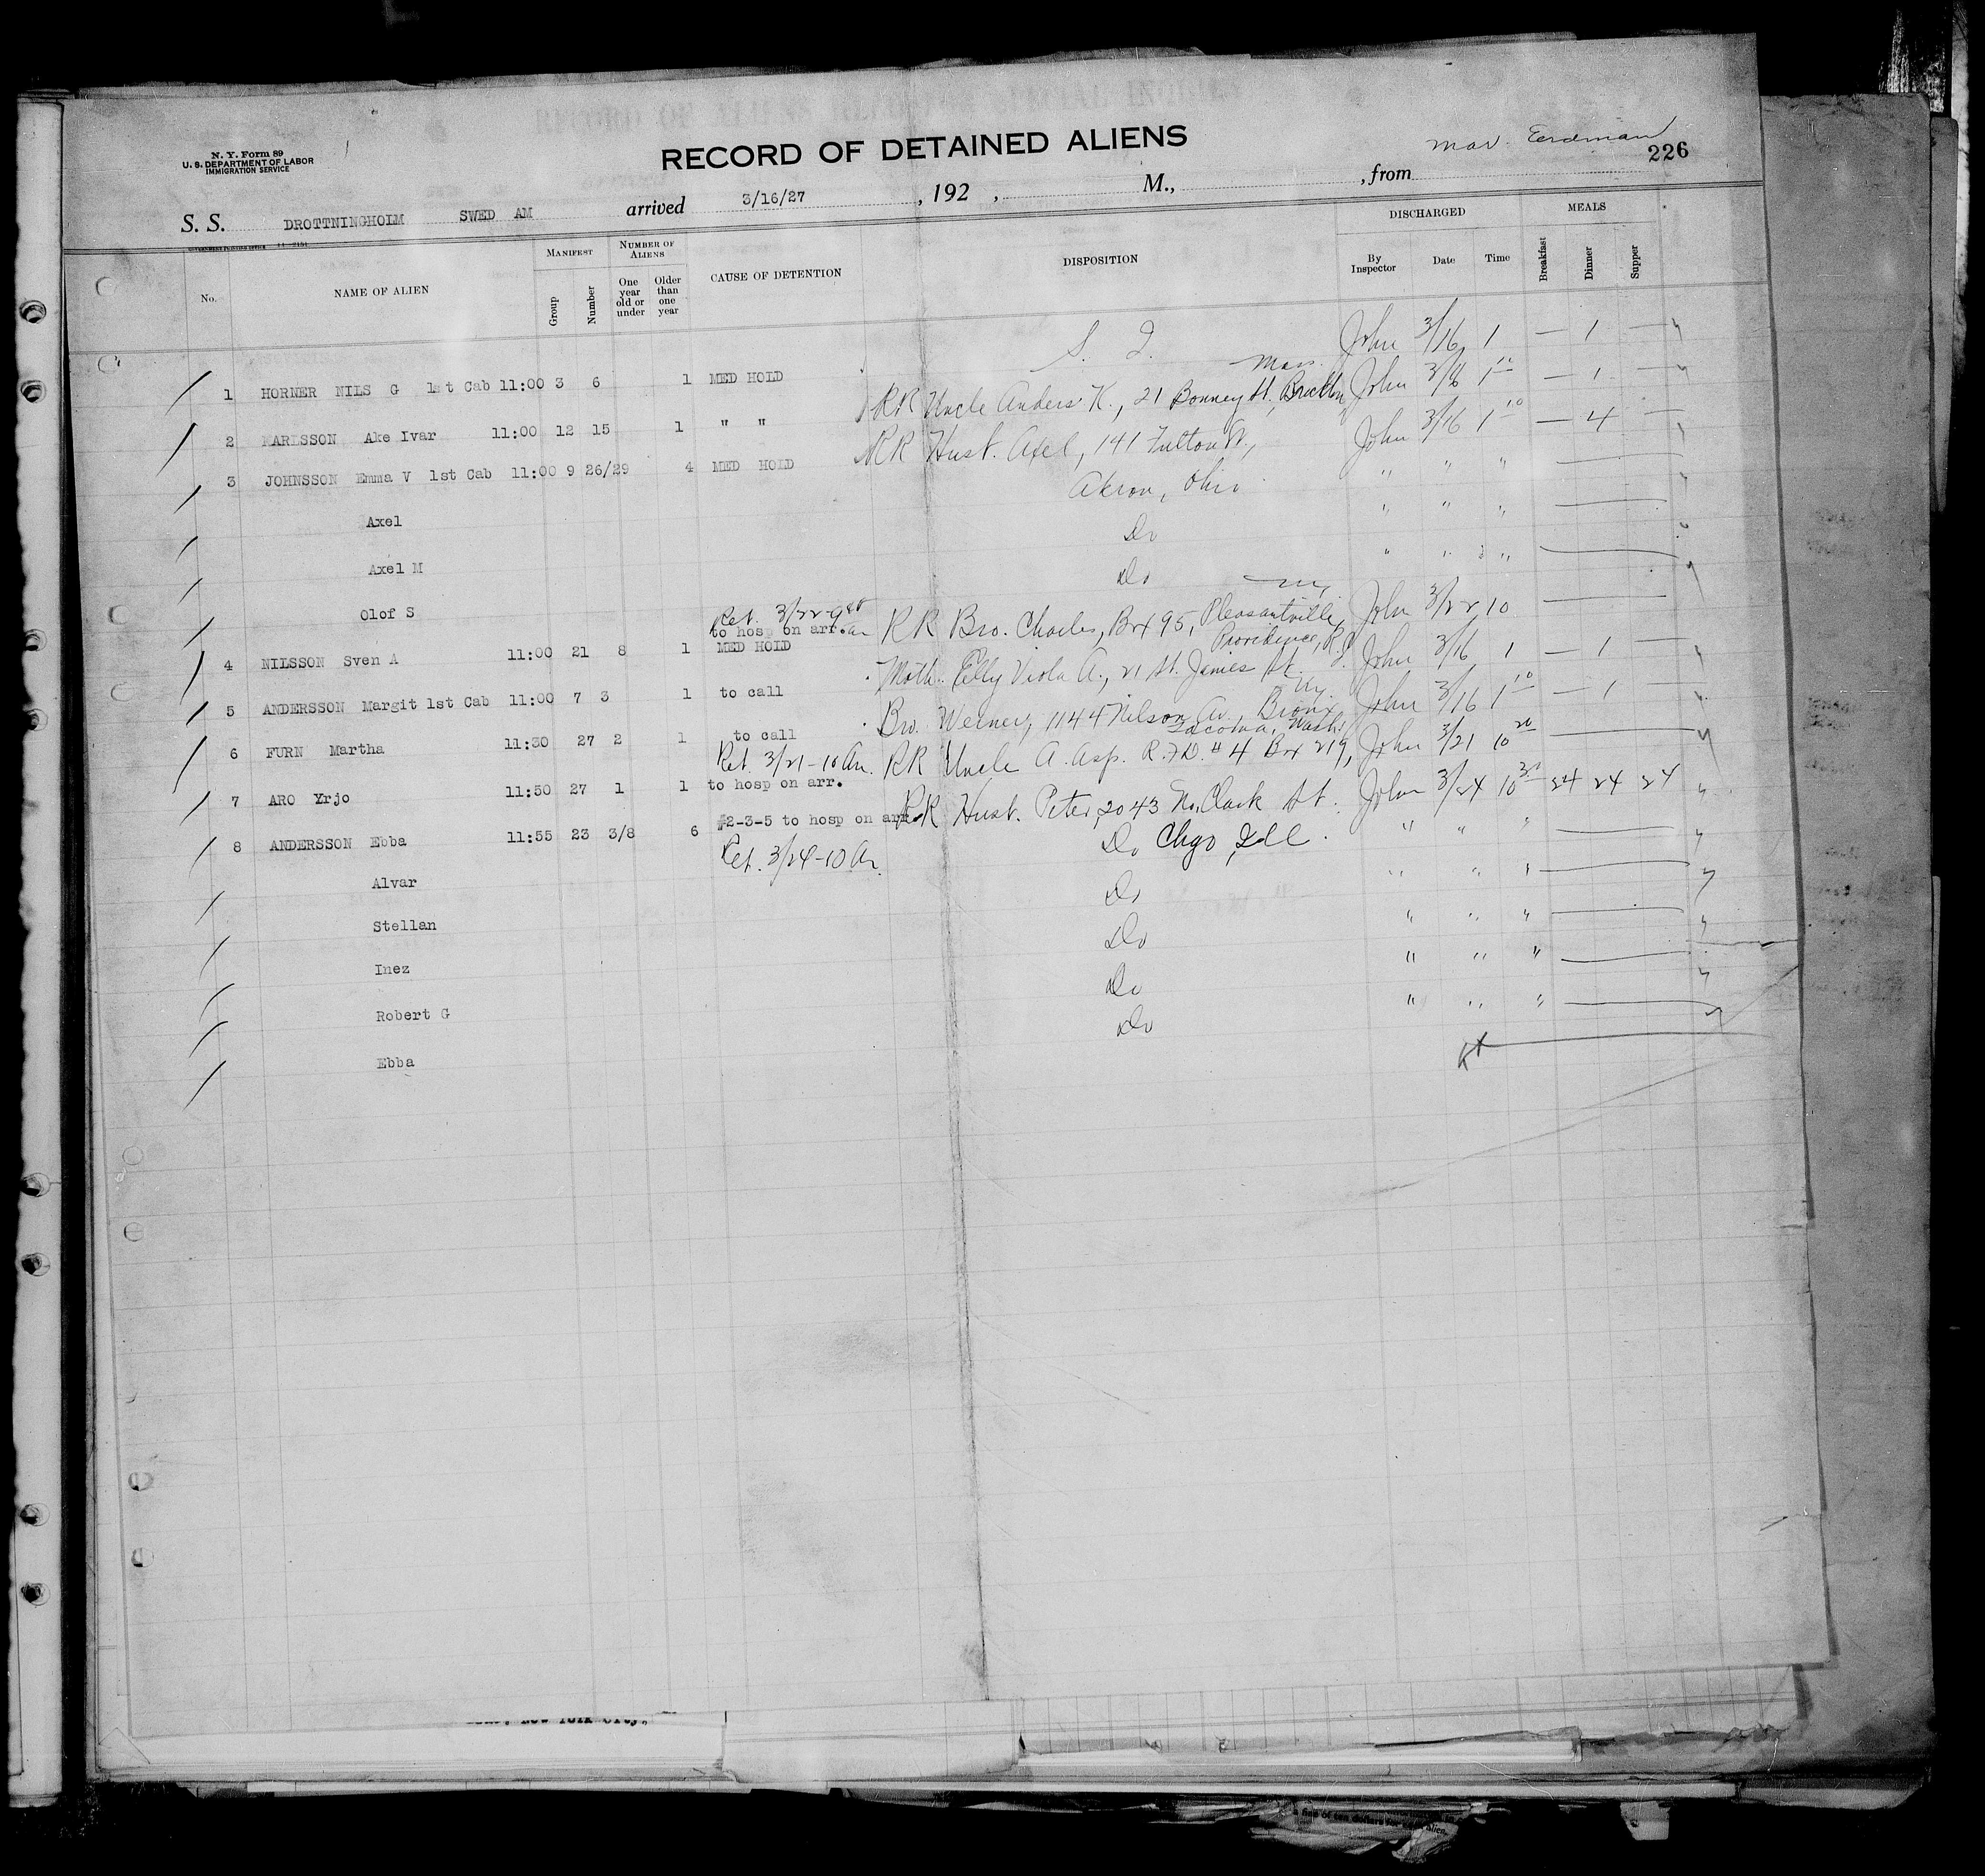 RECORD OF DETAINED ALIENS
N. Y. Form 89
U. S. DEPARTMENT OF LABOR
IMMIGRATION SERVICE
226
S. S. DROTTNINGHOLM SWED AM arrived 3/16/27, 192 , M., , from
No. NAME OF ALIEN MANIFEST Group Number NUMBER OF ALIENS One year old or under Older than one year CAUSE OF DETENTION DISPOSITION DISCHARGED By Inspector Date Time MEALS Breakfast Dinner Supper
1 HORNER NILS G 1st Cab 11:00 3 6 1 MED HOLD S. I. John 3/16 1 — 1 —
Mass.
2 KARLSSON Ake Ivar 11:00 12 15 1 " " RR Uncle Anders K., 21 Bonney St., Brockton John 3/16 1 10 — 1 —
3 JOHNSSON Emma V 1st Cab 11:00 9 26/29 4 MED HOLD RR Husb. Axel, 141 Fulton St., John 3/16 1 10 — 4 —
Akron, Ohio " " "
Axel Do " " "
Axel M Do " " "
Olof S
Ret. 3/22-9 AM
to hosp on arr. N.Y.
4 NILSSON Sven A 11:00 21 8 1 MED HOLD RR Bro. Charles, Box 95, Pleasantville, John 3/22 10
Providence, R.I.
5 ANDERSSON Margit 1st Cab 11:00 7 3 1 to call Moth. Elly Viola A., 21 St. James St. John 3/16 1 — 1 —
N.Y.
6 FURN Martha 11:30 27 2 1 to call Bro. Werner, 1144 Nelson Av. Bronx John 3/16 1 10 — 1 —
Ret. 3/21-10 AM. Tacoma, Wash.
7 ARO Yrjo 11:50 27 1 1 to hosp on arr. RR Uncle A. Asp. R.F.D. # 4 Box 219, John 3/21 10 20
8 ANDERSSON Ebba 11:55 23 3/8 6 #2-3-5 to hosp on arr. RR Husb. Peter, 2043 No. Clark St. John 3/24 10 30 24 24 24
Ret. 3/24-10 AM. Do Chgo, Ill. " " "
Alvar Do " " "
Stellan Do " " "
Inez Do " " "
Robert G Do " " "
Ebba
New York City,